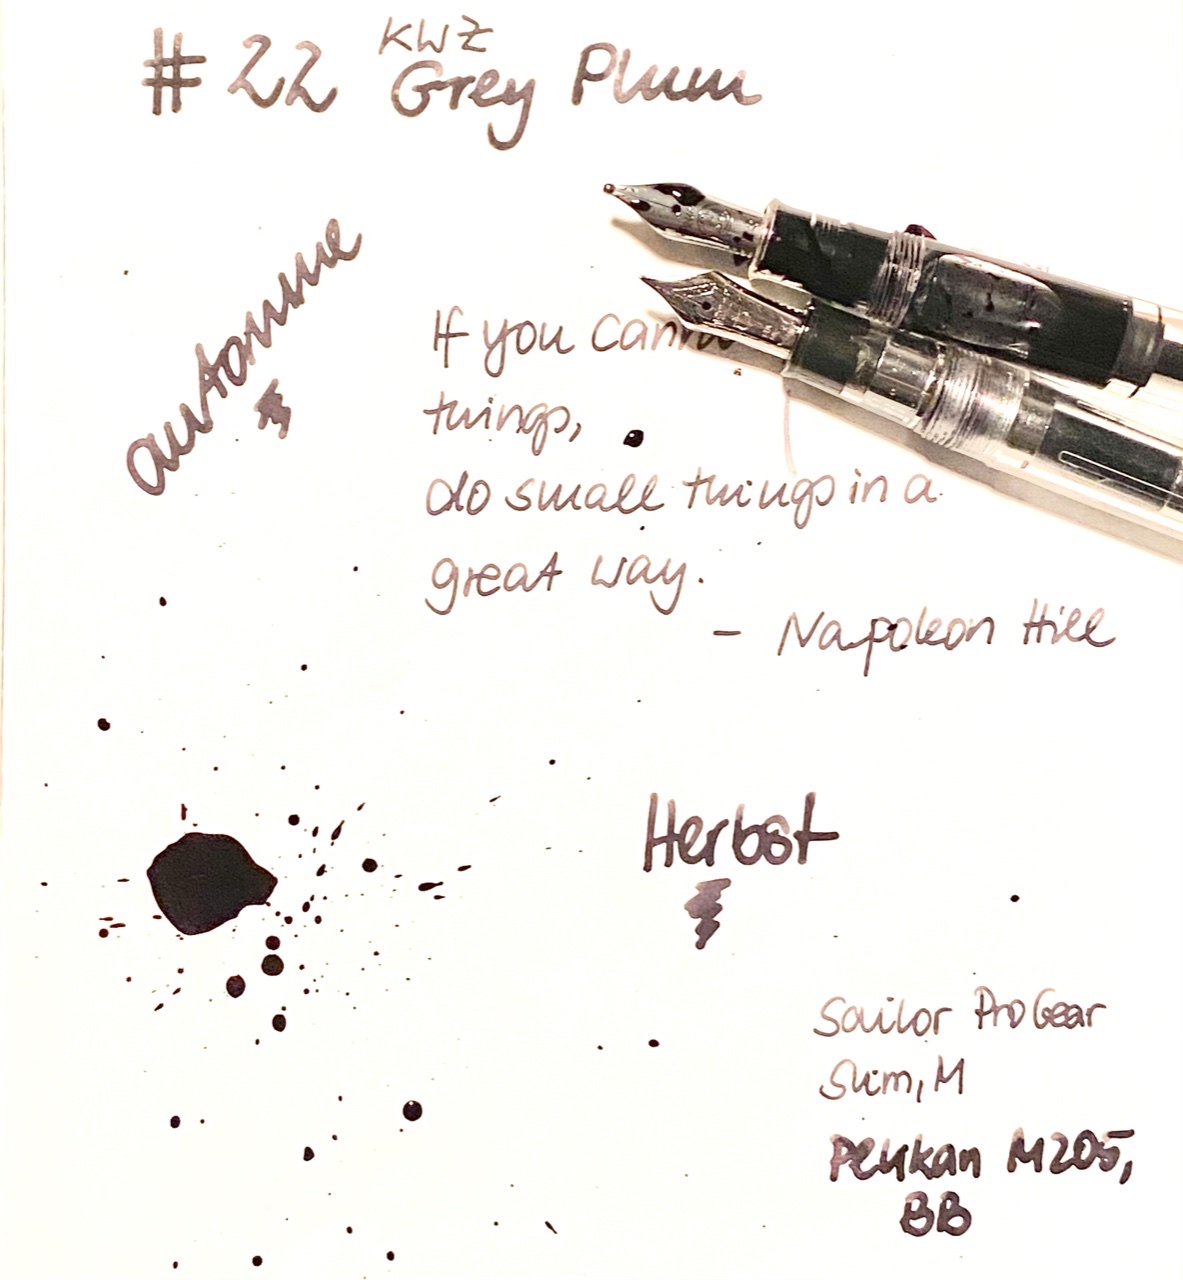 #22 KWZ
Grey Plum
automne
If you cann
things,
do small things in a
great way.
- Napoleon Hill
Herbst
Sailor ProGear
Slim, M
Pelikan M205,
BB